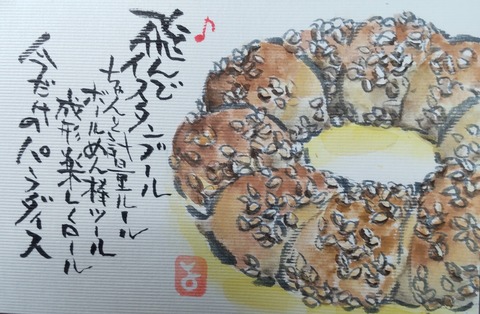 飛んで
イスタンブール
ちゃんと計量ルール
ボールめん棒ツール
成形楽しくロール
今だけのパラダイス